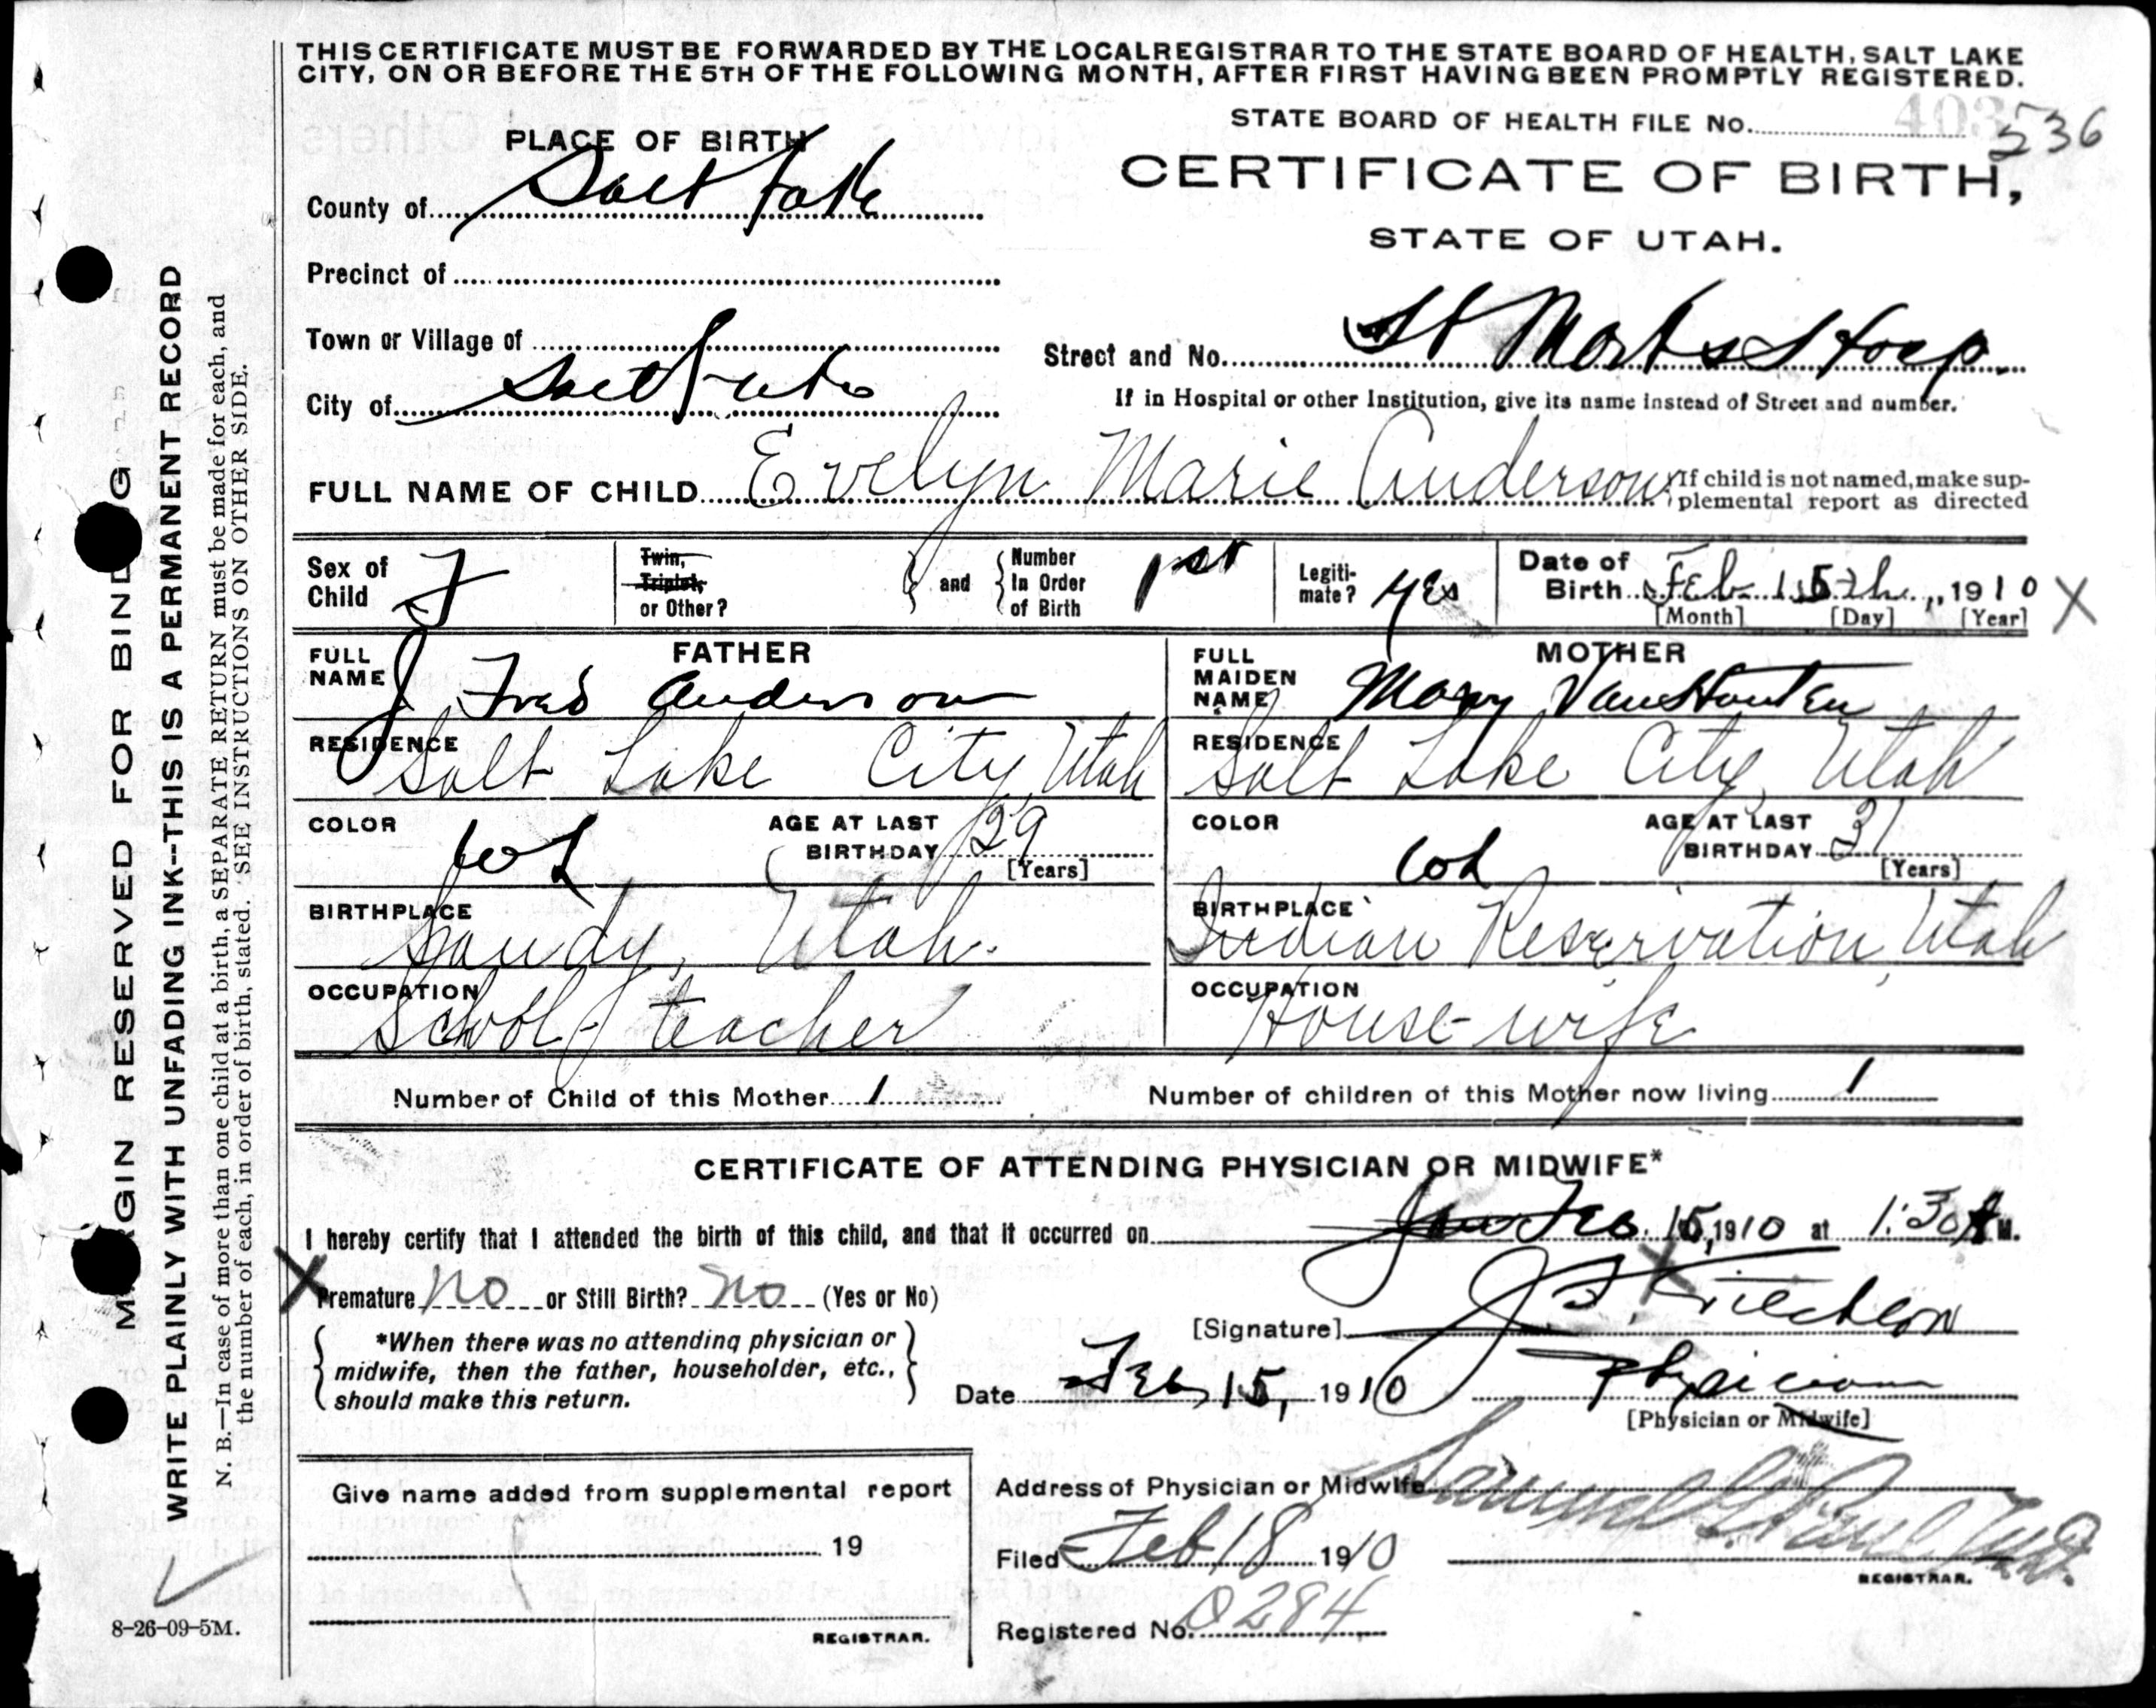 THIS CERTIFICATE MUST BE FORWARDED BY THE LOCAL REGISTRAR TO THE STATE BOARD OF HEALTH, SALT LAKE
CITY, ON OR BEFORE THE 5TH OF THE FOLLOWING MONTH, AFTER FIRST HAVING BEEN PROMPTLY REGISTERED.
STATE BOARD OF HEALTH FILE No. 403 536
PLACE OF BIRTH
CERTIFICATE OF BIRTH,
STATE OF UTAH.
County of Salt Lake
Precinct of
Town or Village of
Street and No. St Marks Hosp.
City of Salt Lake
If in Hospital or other Institution, give its name instead of Street and number.
FULL NAME OF CHILD Evelyn Marie Anderson
If child is not named, make sup-
plemental report as directed
Sex of Child F
Twin, Triplet, or Other?
and
Number In Order of Birth 1st
Legiti-mate? Yes
Date of Birth Feb 15th, 1910 X
[Month] [Day] [Year]
FATHER
FULL NAME J Fred Anderson
MOTHER
FULL MAIDEN NAME Mary VanHouten
RESIDENCE Salt Lake City, Utah
RESIDENCE Salt Lake City, Utah
COLOR
AGE AT LAST BIRTHDAY 29 [Years]
COLOR
AGE AT LAST BIRTHDAY 31 [Years]
BIRTHPLACE Sandy, Utah.
BIRTHPLACE Indian Reservation, Utah
OCCUPATION School-teacher
OCCUPATION House-wife
Number of Child of this Mother 1
Number of children of this Mother now living 1
CERTIFICATE OF ATTENDING PHYSICIAN OR MIDWIFE*
I hereby certify that I attended the birth of this child, and that it occurred on Jan Feb. 15, 1910 at 1:30 A M.
X Premature No or Still Birth? No (Yes or No)
*When there was no attending physician or
midwife, then the father, householder, etc.,
should make this return.
[Signature] J
Date Feb 15, 1910 Physician
[Physician or Midwife]
Give name added from supplemental report
19
REGISTRAR.
Address of Physician or Midwife
Samuel G. Paul M.D.
Filed Feb 18 1910
REGISTRAR.
Registered No. 0284
MARGIN RESERVED FOR BINDING
WRITE PLAINLY WITH UNFADING INK--THIS IS A PERMANENT RECORD
N. B.—In case of more than one child at a birth, a SEPARATE RETURN must be made for each, and
the number of each, in order of birth, stated. SEE INSTRUCTIONS ON OTHER SIDE.
8-26-09-5M.